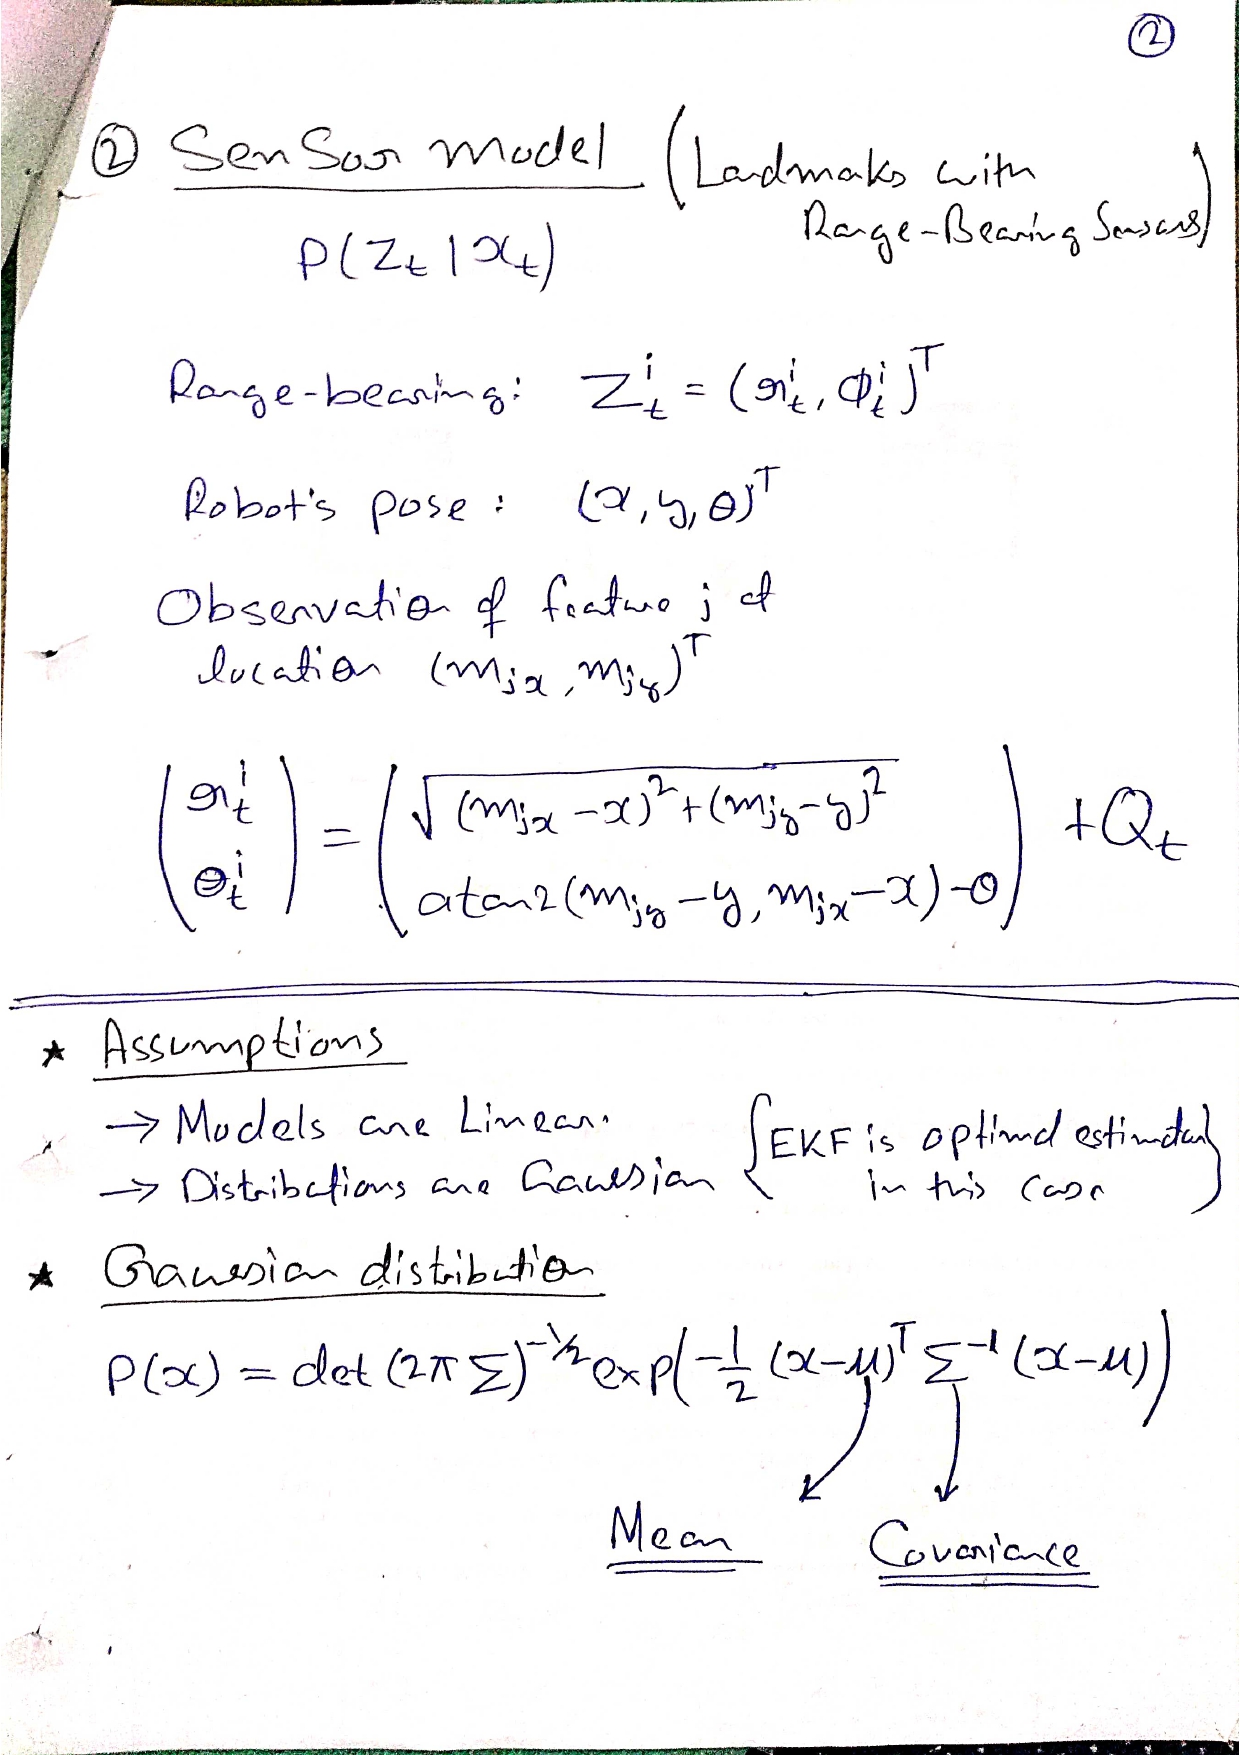 ②
② Sensor model (Landmaks with
Range-Bearing Sensors)
P(Z_t | x_t)
Range-bearing: Z_t^i = (r_t^i, Φ_t^i)^T
Robot's pose : (x, y, θ)^T
Observation of feature j at
location (m_jx, m_jy)^T
(r_t^i θ_t^i) = (√(m_jx - x)^2 + (m_jy - y)^2 atan2(m_jy - y, m_jx - x) - θ) + Q_t
★ Assumptions
→ Models are Linear. {EKF is optimal estimator
→ Distributions are Gaussian in this case}
★ Gaussian distribution
P(x) = det (2π Σ)^-1/2 exp(-1/2 (x-μ)^T Σ^-1 (x-μ))
Mean Covariance